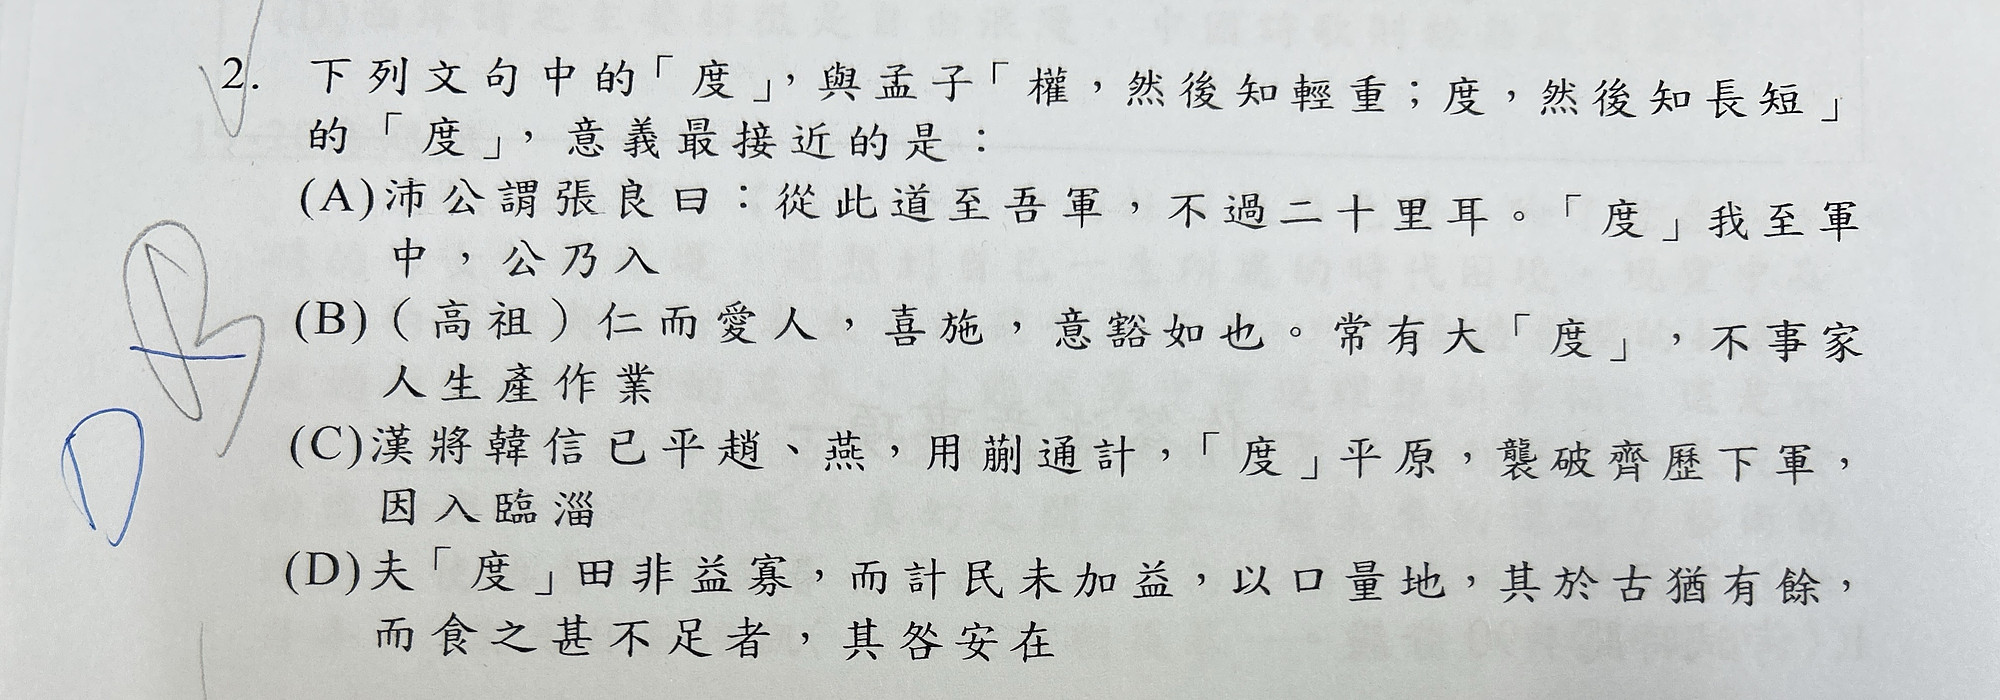 2. 下列文句中的「度」，與孟子「權，然後知輕重；度，然後知長短」
的「度」，意義最接近的是：
(A)沛公謂張良曰：從此道至吾軍，不過二十里耳。「度」我至軍
中，公乃入
(B)（高祖）仁而愛人，喜施，意豁如也。常有大「度」，不事家
人生產作業
(C)漢將韓信已平趙、燕，用蒯通計，「度」平原，襲破齊歷下軍，
因入臨淄
(D)夫「度」田非益寡，而計民未加益，以口量地，其於古猶有餘，
而食之甚不足者，其咎安在
D